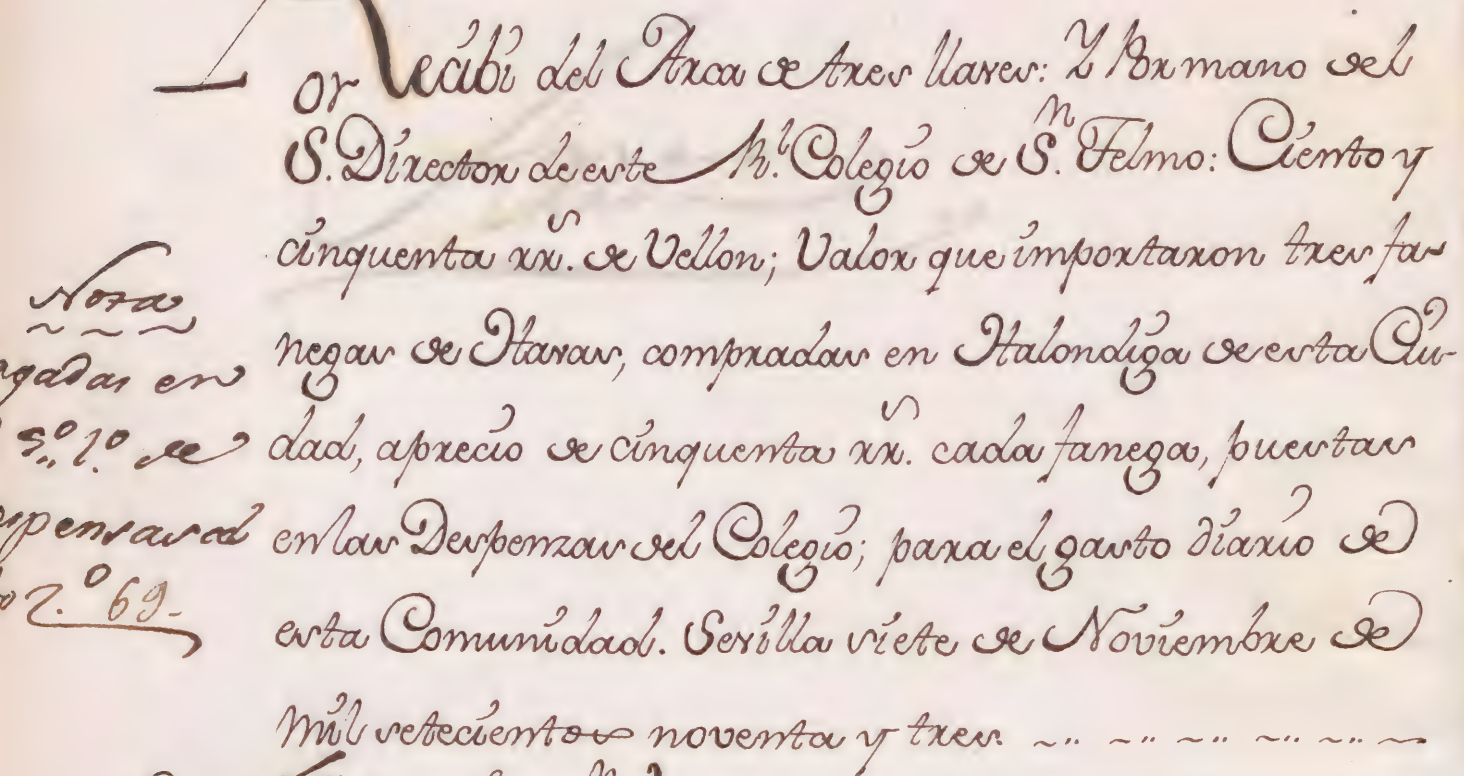 or Recibi del Arca de tres llaves: Y Por mano del
S. Director de este Rl. Colegio de Sn. Telmo: Ciento y
cinquenta rrs. de Vellon; Valor que importaron tres fa-
negas de Havas, compradas en Halondiga de esta Ciu-
dad, aprecio de cinquenta rrs. cada fanega, puestas
en las Despenzas del Colegio; para el gasto diario de
esta Comunidad. Sevilla siete de Noviembre de
mil setecientos noventa y tres.
Nota
gadas en
1º. de
pensas al
2.º 69-